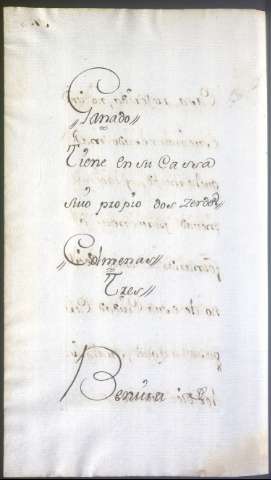 Ganado
Tiene en su Cassa
suio propio dos zerdos
Colmenas
Tres